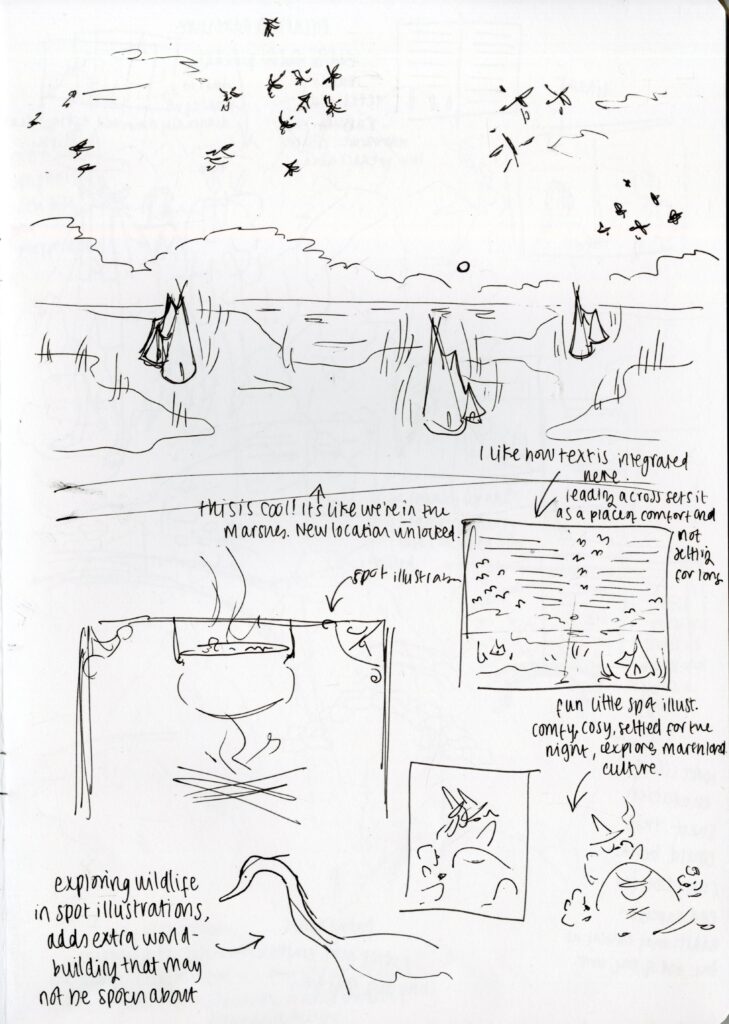 I like how text is integrated
here.
reading across sets it
as a place of comfort and
not
settling
for long
this is cool! It's like we're in the
Marshes. New location unlocked.
spot illustration
fun little spot illust.
comfy, cosy, settled for the
night, explores marshland
culture.
exploring wildlife
in spot illustrations,
adds extra world-
building that may
not be spoken about